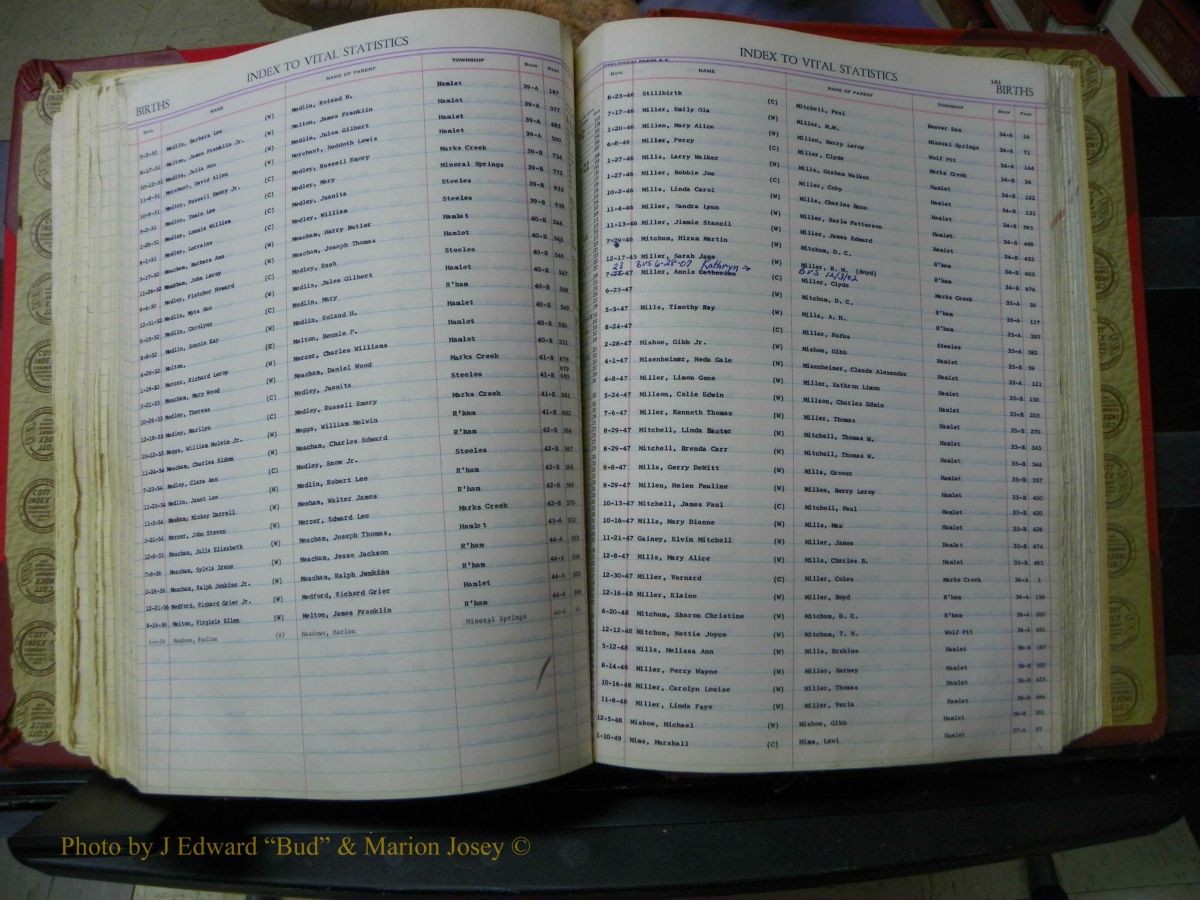 INDEX TO VITAL STATISTICS
BIRTHS
DATE NAME NAME OF PARENT TOWNSHIP BOOK PAGE
2-2-51 Medlin, Barbara Lee (W) Medlin, Roland H. Hamlet 39-A 187
8-17-51 Melton, James Franklin Jr. (W) Melton, James Franklin Hamlet 39-A 377
10-12-51 Medlin, Julia Ann (W) Medlin, Jules Gilbert Hamlet 39-A 483
Merchant, David Allen (W) Merchant, Suddoth Lewis Hamlet 39-A 500
Medley, Russell Emory Jr. (C) Medley, Russell Emory Marks Creek 39-B 756
Medley, Tomie Lee (C) Medley, Mary Mineral Springs 39-B 772
Medley, Lonnie William (C) Medley, Juanita Steeles 39-B 935
Medley, Lorraine (C) Medley, William Steeles 39-B 939
Meacham, Barbara Ann (W) Meacham, Harry Butler Hamlet 40-B
Meacham, John Lacey (W) Meacham, Joseph Thomas Steeles 40-B
Medley, Fletcher Howard (C) Medley, Rush Hamlet 40-B 547
Medlin, Myra Sue (W) Medlin, Jules Gilbert R'ham 40-B 548
Medlin, Carolynn (W) Medlin, Mary Hamlet 40-B 549
Medlin, Sonnie Kay (W) Medlin, Roland H. Hamlet 40-B 550
Melton, Melton, Bennie F. Hamlet 40-B 551
Mercer, Richard Leroy (W) Mercer, Charles Williams Marks Creek 41-B 678
Meacham, Mary Wood (W) Meacham, Daniel Wood Steeles 41-B 679 680
Medley, Theresa (C) Medley, Juanita Marks Creek 41-B 681
Medley, Marilyn (C) Medley, Russell Emery R'ham 41-B 682
Mepps, William Melvin Jr. (W) Mepps, William Melvin R'ham 42-B 566
Meacham, Charles Eldon (W) Meachan, Charles Edward Steeles 42-B 567
7-23-54 Medley, Clara Ann (C) Medley, Snow Jr. R'ham 42-B 568
11-23-54 Medlin, Janet Lee (W) Medlin, Robert Lee Marks Creek 42-B 569
11-5-54 Meeham, Mickey Darrell (W) Meeham, Walter James Hamlet 42-B 570
Mercer, John Steven (W) Mercer, Edward Lee R'ham 43-A 512
Meachan, Julia Elizabeth (W) Meachan, Joseph Thomas, R'ham 44-A
Meachan, Sylvia Irene (W) Meachan, Jesse Jackson Hamlet 44-A
Meachan, Ralph Jenkins Jr. (W) Meachan, Ralph Jenkins R'ham 44-A
12-21-56 Medford, Richard Grier Jr. (W) Medford, Richard Grier Mineral Springs 44-A
8-26-56 Melton, Virginia Ellen (W) Melton, James Franklin
Meadows, Pauline (W) Meadows, Marion
INDEX TO VITAL STATISTICS
181
BIRTHS
DATE NAME NAME OF PARENT TOWNSHIP BOOK PAGE
8-23-46 Stillbirth (C) Mitchell, Paul Beaver Dam 34-A 16
7-17-46 Miller, Emily Ola (W) Miller, M.M. Mineral Springs 34-A 71
1-20-46 Millen, Mary Alice (W) Millen, Berry Leroy Wolf Pit 34-A 144
6-8-46 Miller, Percy (C) Miller, Clyde Marks Creek 34-B 54
1-27-46 Mills, Larry Walker (W) Mills, Graham Walker Hamlet 34-B 122
1-27-46 Miller, Bobbie Joe (C) Miller, Coby Hamlet 34-B 131
10-2-46 Mills, Linda Carol (W) Mills, Charles Benn Hamlet 34-B 393
11-4-46 Miller, Sandra Lynn (W) Miller, Earle Patterson Hamlet 34-B 449
11-13-46 Miller, Jimmie Stancil (W) Miller, James Edward Hamlet 34-B 453
7-29-46 Mitchum, Hiram Mertin (W) Mitchum, D. C. R'ham 34-B 603
12-17-45 Miller, Sarah Jane (W) Miller, B. M. (Boyd) R'ham 34-B 676
23 BVS 6-28-07 Kathryn → BVS 12/3/02
7-22-47 Miller, Annie Catherine (C) Miller, Clyde Marks Creek 35-A 30
6-23-47 (W) Mitchum, D. C. R'ham 35-A 117
5-5-47 Mills, Timothy Ray (W) Mills, A. H. R'ham 35-A
8-24-47 (C) Miller, Rufus Steeles 35-A 382
2-28-47 Mishoe, Gibb Jr. (W) Mishoe, Gibb Hamlet 35-B 59
4-1-47 Misenheimer, Neda Gale (W) Misenheimer, Claude Alexander Hamlet 35-B 121
4-8-47 Miller, Limon Gene (W) Miller, Kathron Limon Hamlet 35-B 130
5-24-47 Millson, Colie Edwin (W) Millson, Charles Edwin Hamlet 35-B 203
7-6-47 Miller, Kenneth Thomas (W) Miller, Thomas Hamlet 35-B 270
8-29-47 Mitchell, Linda Baxter (W) Mitchell, Thomas W. Hamlet 35-B 343
8-29-47 Mitchell, Brenda Carr (W) Mitchell, Thomas W. Hamlet 35-B 344
9-8-47 Mills, Gerry DeWitt (W) Mills, Grover Hamlet 35-B 357
9-29-47 Millen, Helen Pauline (W) Millen, Berry Leroy Hamlet 35-B 400
10-13-47 Mitchell, James Paul (C) Mitchell, Paul Hamlet 35-B 420
10-16-47 Mills, Mary Dianne (W) Mills, Max Hamlet 35-B 428
11-21-47 Gainey, Elvin Mitchell (W) Miller, James Hamlet 35-B 474
12-8-47 Mills, Mary Alice (W) Mills, Charles B. Hamlet 35-B 493
12-30-47 Miller, Vernard (C) Miller, Coles Marks Creek 36-A 1
12-16-48 Miller, Elaine (W) Miller, Boyd R'ham 36-A 156
6-20-48 Mitchum, Sharon Christine (W) Mitchum, D. C. R'ham 36-A 200
12-12-48 Mitchum, Nettie Joyce (W) Mitchum, T. N. Wolf Pit 36-A 491
5-12-48 Mills, Melissa Ann (W) Mills, Erskine Hamlet 36-B 187
8-14-48 Miller, Perry Wayne (W) Miller, Barney Hamlet 36-B
10-16-48 Miller, Carolyn Louise (W) Miller, Thomas Hamlet 36-B 423
11-8-48 Miller, Linda Faye (W) Miller, Verla Hamlet 36-B
12-5-48 Mishoe, Michael (W) Mishoe, Gibb Hamlet 36-B 501
1-10-49 Mims, Marshall (C) Mims, Levi Hamlet 37-A
COTT INDEX COMPANY
Photo by J Edward “Bud” & Marion Josey ©